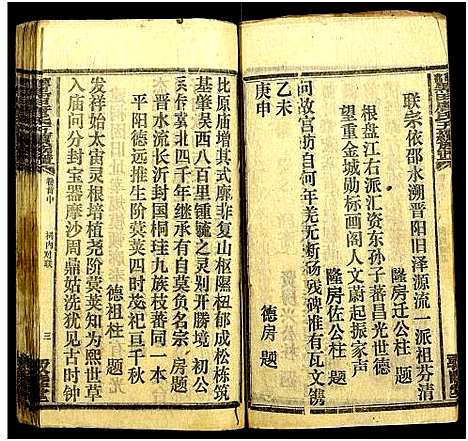 联宗依邵水溯晋阳旧泽源流一派祖芬清
隆房迁公柱 题
根盘江右派汇资东孙子蕃昌光世德
望重金城勋标画阁人文蔚起振家声
隆房佐公柱 题
问故宫坊自何年羌无断殇残碑惟有瓦文镌
德房 题
乙未
庚申
比原庙增其式廓非复山枢隰杻郁成松栋筑
基肇岁酉八百里锺毓之灵别开胜境 初公
系传冀北四千年继承有自莫负名宗 房题
晋水流长沂封国桐珪九族枝蕃同一本
平阳德远推生阶蓂荚四时箴祀亘千秋
德祖柱 题
发祥始太宙灵根培植尧阶蓂荚知为熙世草 光
入庙问分封宝器摩沙周鼎姑洗犹见古时钟
卷首中 祠内对联 三